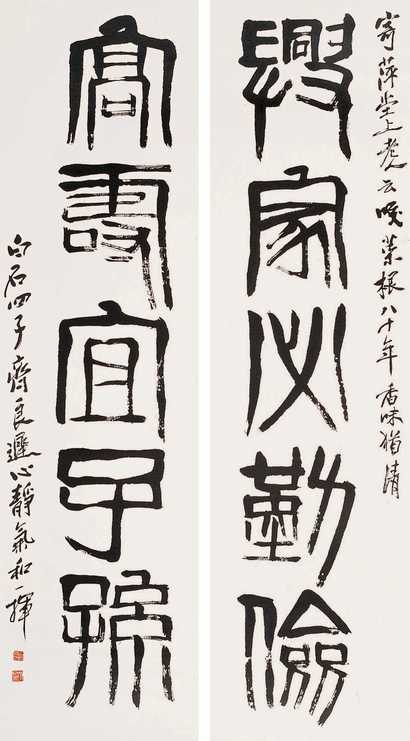 寄萍堂上老人云菜根八十年香味猶清
興家必勤儉
高壽宜子孫
白石四子齊良遲心靜氣和一揮